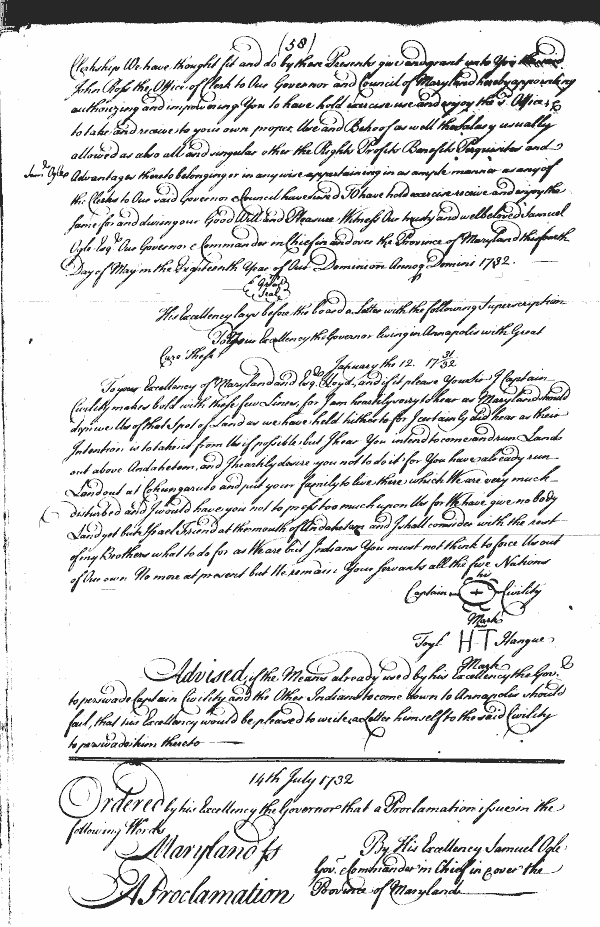 (58)
Clerkship We have thought fit and do by these Presents give and grant unto You the said
John Ross the Office of Clerk to Our Governor and Council of Maryland hereby appointing
authorizing and impowering You to have hold exercise use and enjoy the sd. Office, &
to take and receive to your own proper Use and Behoof as well the Salary usually
allowed as also all and singular other the Rights Profits Benefits Perquisites and
Sam: Ogle
Advantages thereto belonging or in any wise appertaining in as ample manner as any of
the Clerks to Our said Governor & Council have used To have hold exercise receive and enjoy the
same for and during our Good Will and Pleasure Witness Our trusty and welbeloved Samuel
Ogle Esqr. Our Governor & Commander in Chief in and over the Province of Maryland this
Day of May in the Eighteenth Year of Our Dominion Annoq Domini 1732
Great Seal
His Excellency lays before the board a Letter with the following Superscription
To your Excellency the Governor living in Annapolis with Great
Care These
January the 12. 17 31/32
To your Excellency of Maryland and Esq. Lloyd, and if it please You Sr. I Captain
Civility makes bold with these few Lines, for I am heartily sorry to hear as Maryland should
deprive Us of that Spot of Land as we have held hitherto for I certainly do hear as their
Intention is to take it from Us if possible but I hear You intend to come and run Lands
out above Andahetem, and I heartily desire you not to do it for You have already run
Land out at Cohungaruto and put your family to live there which We are very much
disturbed and I would have you not to press too much upon Us for We have give no body
Land yet but Israel Friend at the mouth of Andahetem and I shall consider with the rest
of my Brothers what to do for as We are but Indians You must not think to force Us out
of Our own No more at present but We remain Your Servants all the five Nations
his
Captain + Civility
Mark
Toyl HT Hangue
Mark
Advised, if the Means already used by his Excellency the Govr.
to perswade Captain Civility and the Other Indians to come down to Annapolis should
fail, that his Excellency would be pleased to write a Letter himself to the said Civility
to perswade him thereto
14th July 1732
Ordered by his Excellency the Governor that a Proclamation issue in the
following Words
Maryland ss
By His Excellency Samuel Ogle
Govr. & Commander in Chief in & over the
A Proclamation
Province of Maryland